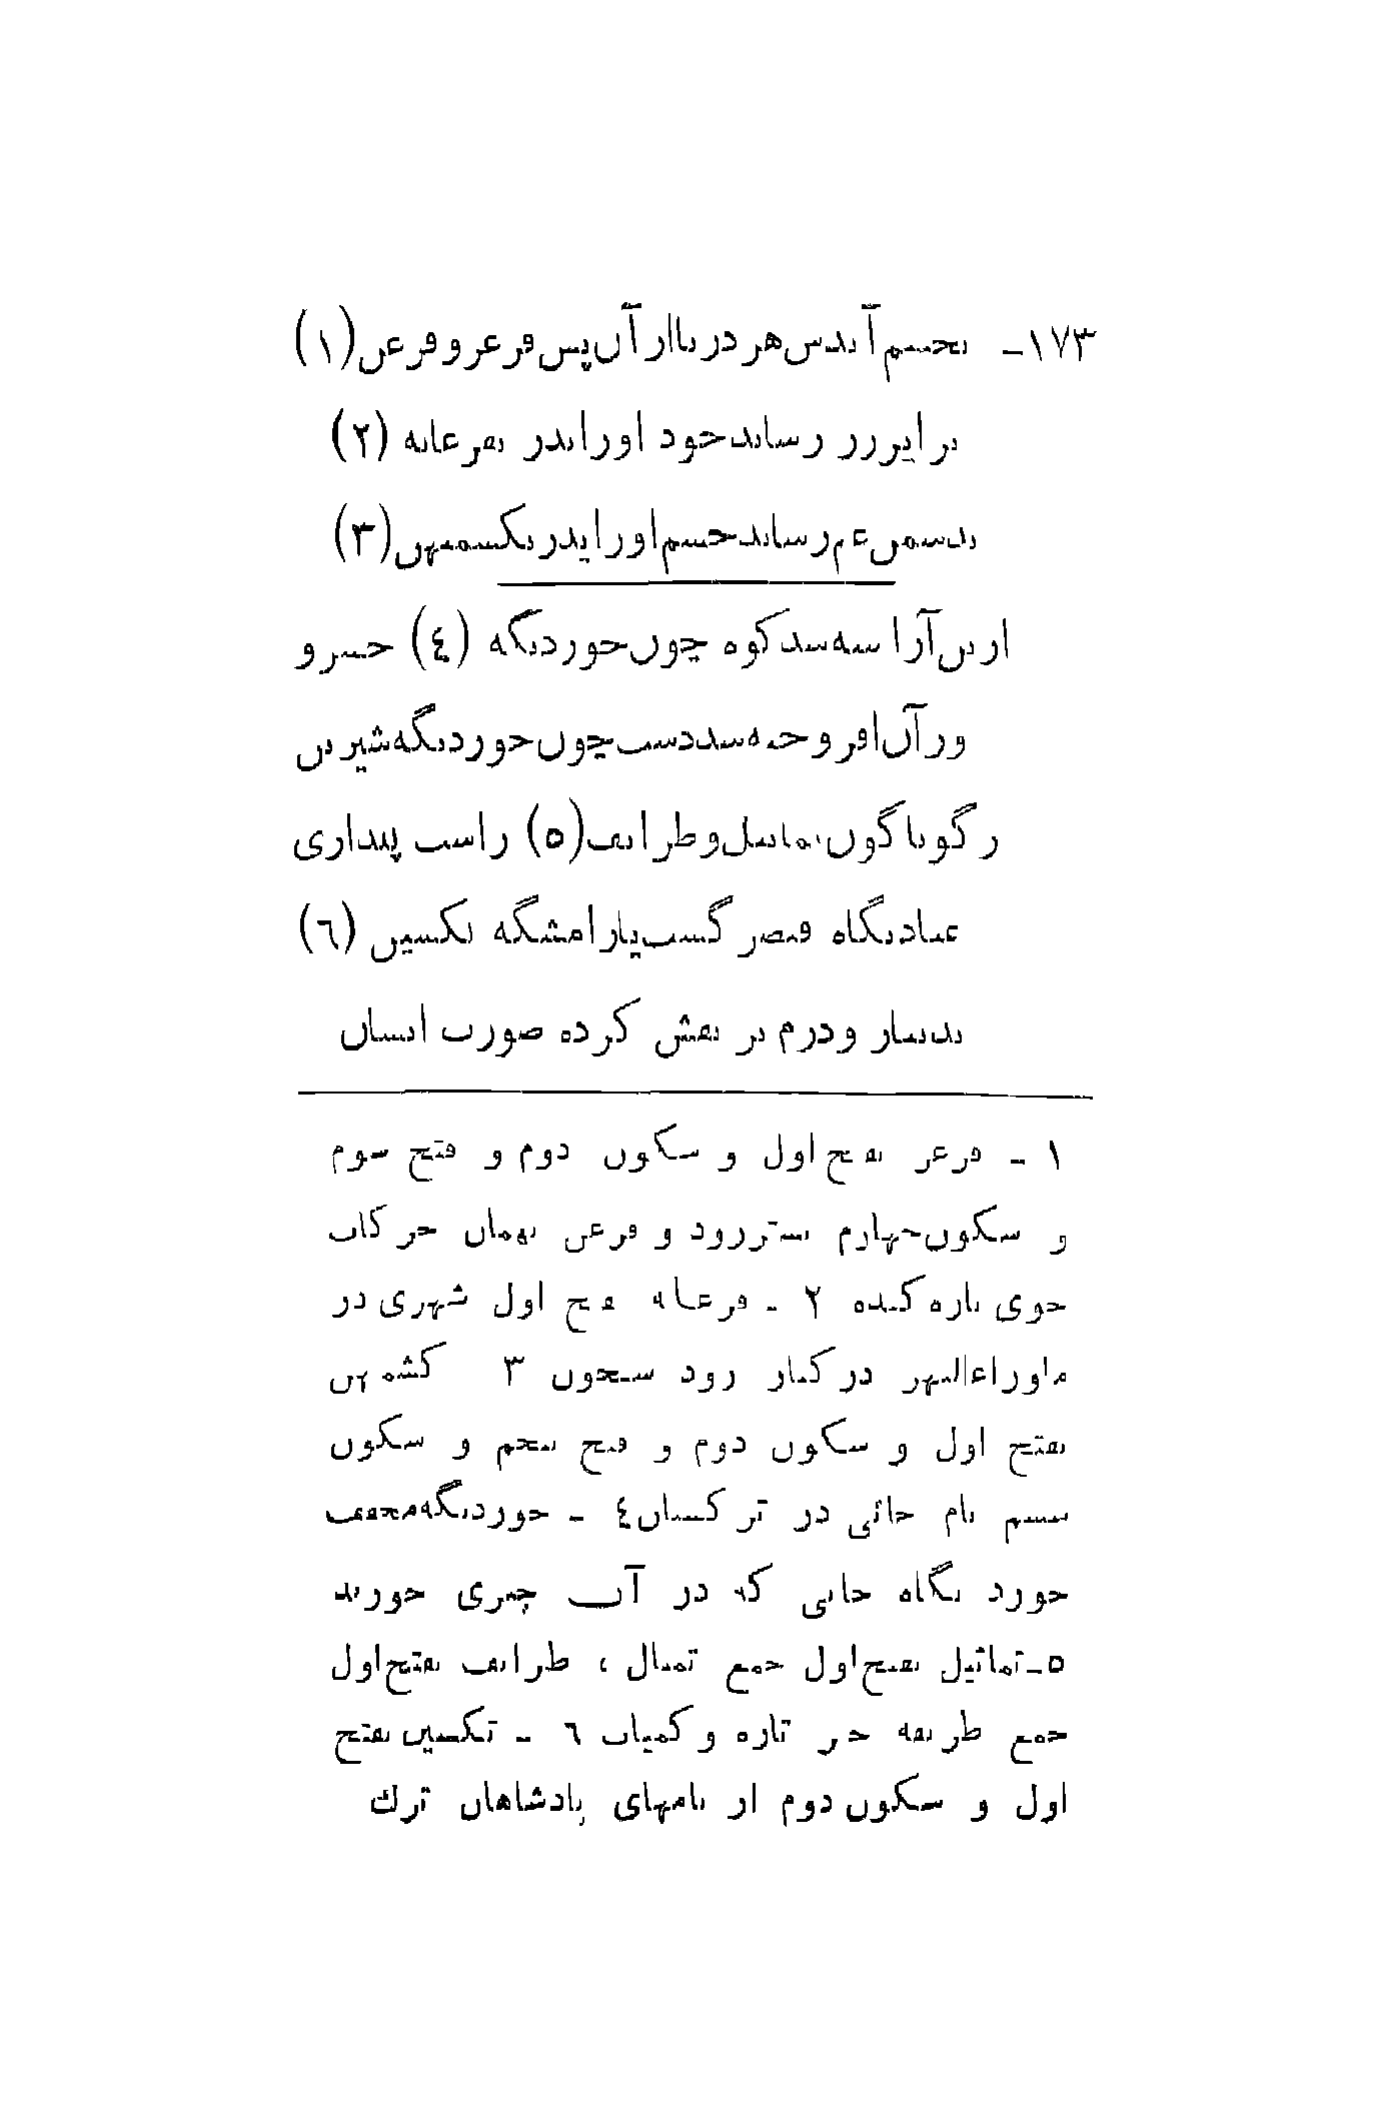 ۱۷۳- بچشم آیدش هر دریا از آن پس فرغر و فرغن (۱)
بر ایزر رساند خود او را اندر بفرغانه (۲)
بدسمن غم رساند خشم او را ایدر بکشمیهن (۳)
ازین آرا سته سد کوه چون خوردنگه (٤) خسرو
ور آن افروخته سد دست چون خوردنگه شیرین
ز گوناگون تماثیل و طرایف (٥) راست پنداری
عبادتگاه قیصر گشت یا رامشگه تکسین (٦)
بدینار و درم بر نقش کرده صورت انسان
۱ - فرغر بفتح اول و سکون دوم و فتح سوم
و سکون چهارم بستررود و فرغن بهمان حرکات
جوی تازه کنده ۲ - فرغانه بفتح اول شهری در
ماوراءالنهر در کنار رود سیحون ۳ کشمیهن
بفتح اول و سکون دوم و فتح پنجم و سکون
ششم نام جائی در ترکستان ٤ - خوردنگه مخفف
خوردنگاه جایی که در آن چیزی خورند
٥- تماثیل بفتح اول جمع تمثال ، طرایف بفتح اول
جمع طریفه چیز تازه و کمیاب ٦ - تکسین بفتح
اول و سکون دوم از نامهای پادشاهان ترك